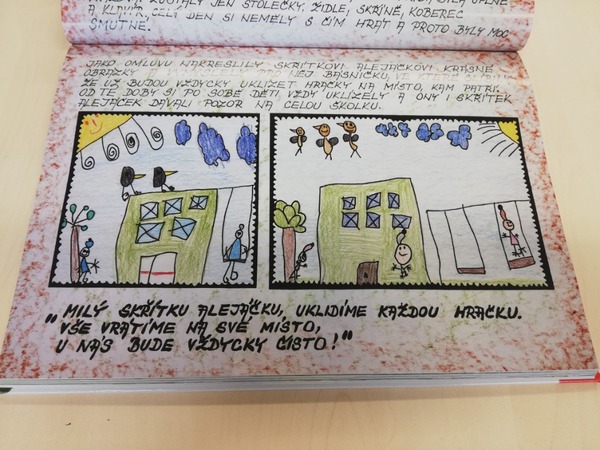 ZŮSTALY JEN STOLEČKY, ŽIDLE, SKŘÍNĚ, KOBEREC
A KLAVÍR, CELÝ DEN SI NEMĚLY S ČÍM HRÁT A PROTO BYLY MOC
SMUTNÉ.
JAKO OMLUVU NAKRESLILY SKŘÍTKOVI ALEJÁČKOVI KRÁSNÉ
OBRÁZKY A VYMYSLELY PRO NĚJ BÁSNIČKU, VE KTERÉ
ŽE UŽ BUDOU VŽDYCKY UKLÍZET HRAČKY NA MÍSTO, KAM PATŘÍ.
OD TÉ DOBY SI PO SOBĚ DĚTI VŽDY UKLÍZELY A ONY I SKŘÍTEK
ALEJÁČEK DÁVALI POZOR NA CELOU ŠKOLKU.
„MILÝ SKŘÍTKU ALEJÁČKU, UKLIDÍME KAŽDOU HRAČKU.
VŠE VRÁTÍME NA SVÉ MÍSTO,
U NÁS BUDE VŽDYCKY ČISTO!"